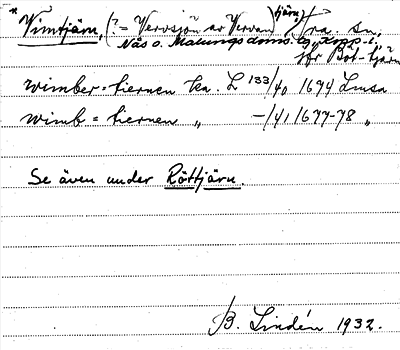 * Vimtjärn, (? = Vervsjö av Verva) tjärn, fra sn,
Näs o. Malungs doms. lg, Kopp. l.
Hr Bot-tjärn
wimber=tiernen ka. L 133/40 1694 Lmsa
wimb=tiernen " -/41 1677-78 "
Se även under Röttjärn.
B. Lindén 1932.